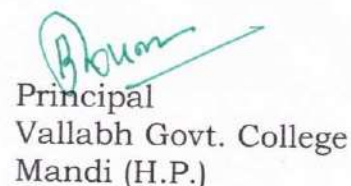 Principal
Vallabh Govt. College
Mandi (H.P.)